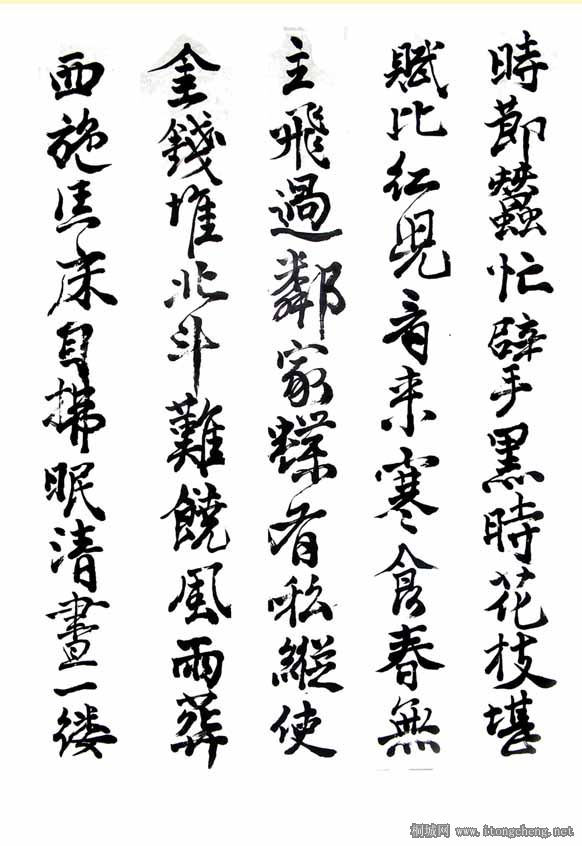 時節蠶忙擘黑時花枝堪
賦比紅兒看来寒食春無
主飛過鄰家蝶有私縱使
金錢堆北斗難饒風雨葬
西施匡床自拂眠清晝一縷
桐城网 www.itongcheng.net